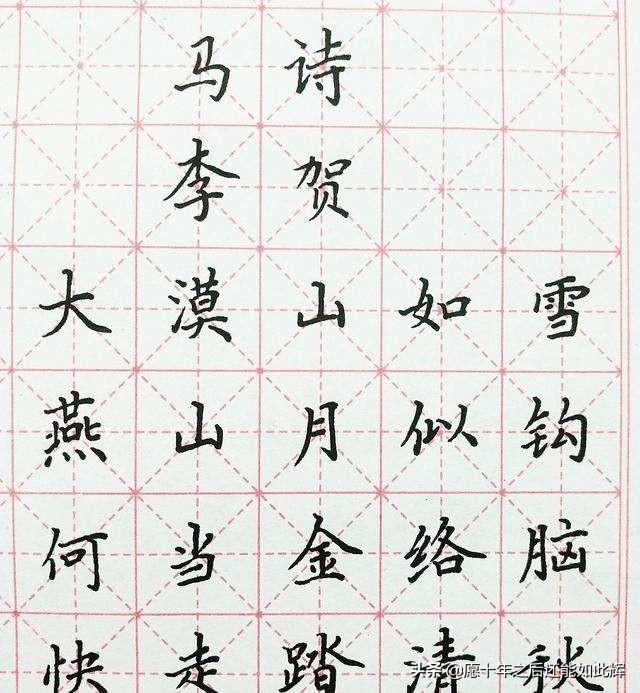 马诗
李贺
大漠山如雪
燕山月似钩
何当金络脑
快走踏清秋
头条@愿十年之后还能如此辉